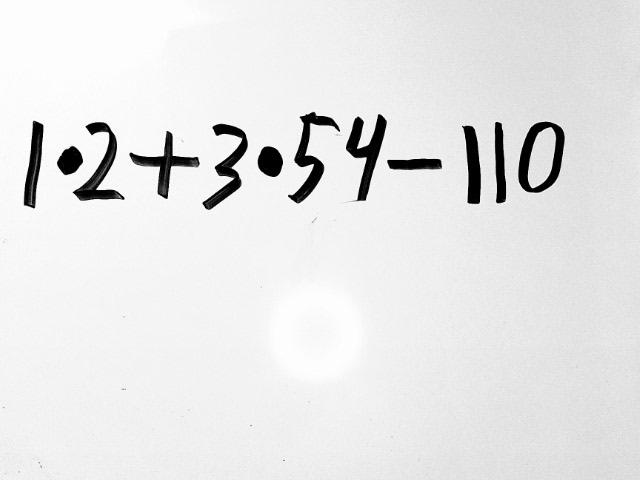 1·2+3·54-110